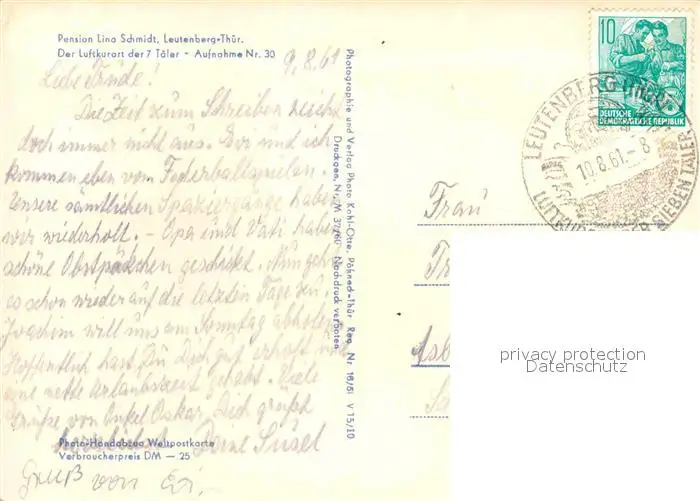 Pension Lina Schmidt, Leutenberg-Thür.
Der Luftkurort der 7 Täler - Aufnahme Nr. 30
9.8.61
Liebe Trude!
Die Zeit zum Schreiben reicht
doch immer nicht aus. Evi und ich
kommen eben vom Federballspielen.
Unsere sämtlichen Spaziergänge haben
wir wiederholt. - Opa und Vati haben
schöne Obstpäckchen geschickt. Nun geht
es schon wieder auf die letzten Tage zu.
Joachim will uns am Sonntag abholen.
Hoffentlich hast Du Dich gut erholt und
eine nette Urlaubszeit gehabt. Viele
Grüße von Onkel Oskar, Dich grüßt
herzlich Deine Susel
Photo-Handabzug Weltpostkarte
Verbraucherpreis DM — 25
Gruß von Evi.-
Photographie und Verlag Photo Kahl-Otte, Pößneck-Thür. Reg. Nr. 16/61 V 15/10
Druckgen. Nr. M 37/60 Nachdruck verboten
10
DEUTSCHE
DEMOKRATISCHE REPUBLIK
LEUTENBERG (THÜR)
10.8.61.-8
LUFTKURORT DER SIEBEN TÄLER
Frau
privacy protection
Datenschutz